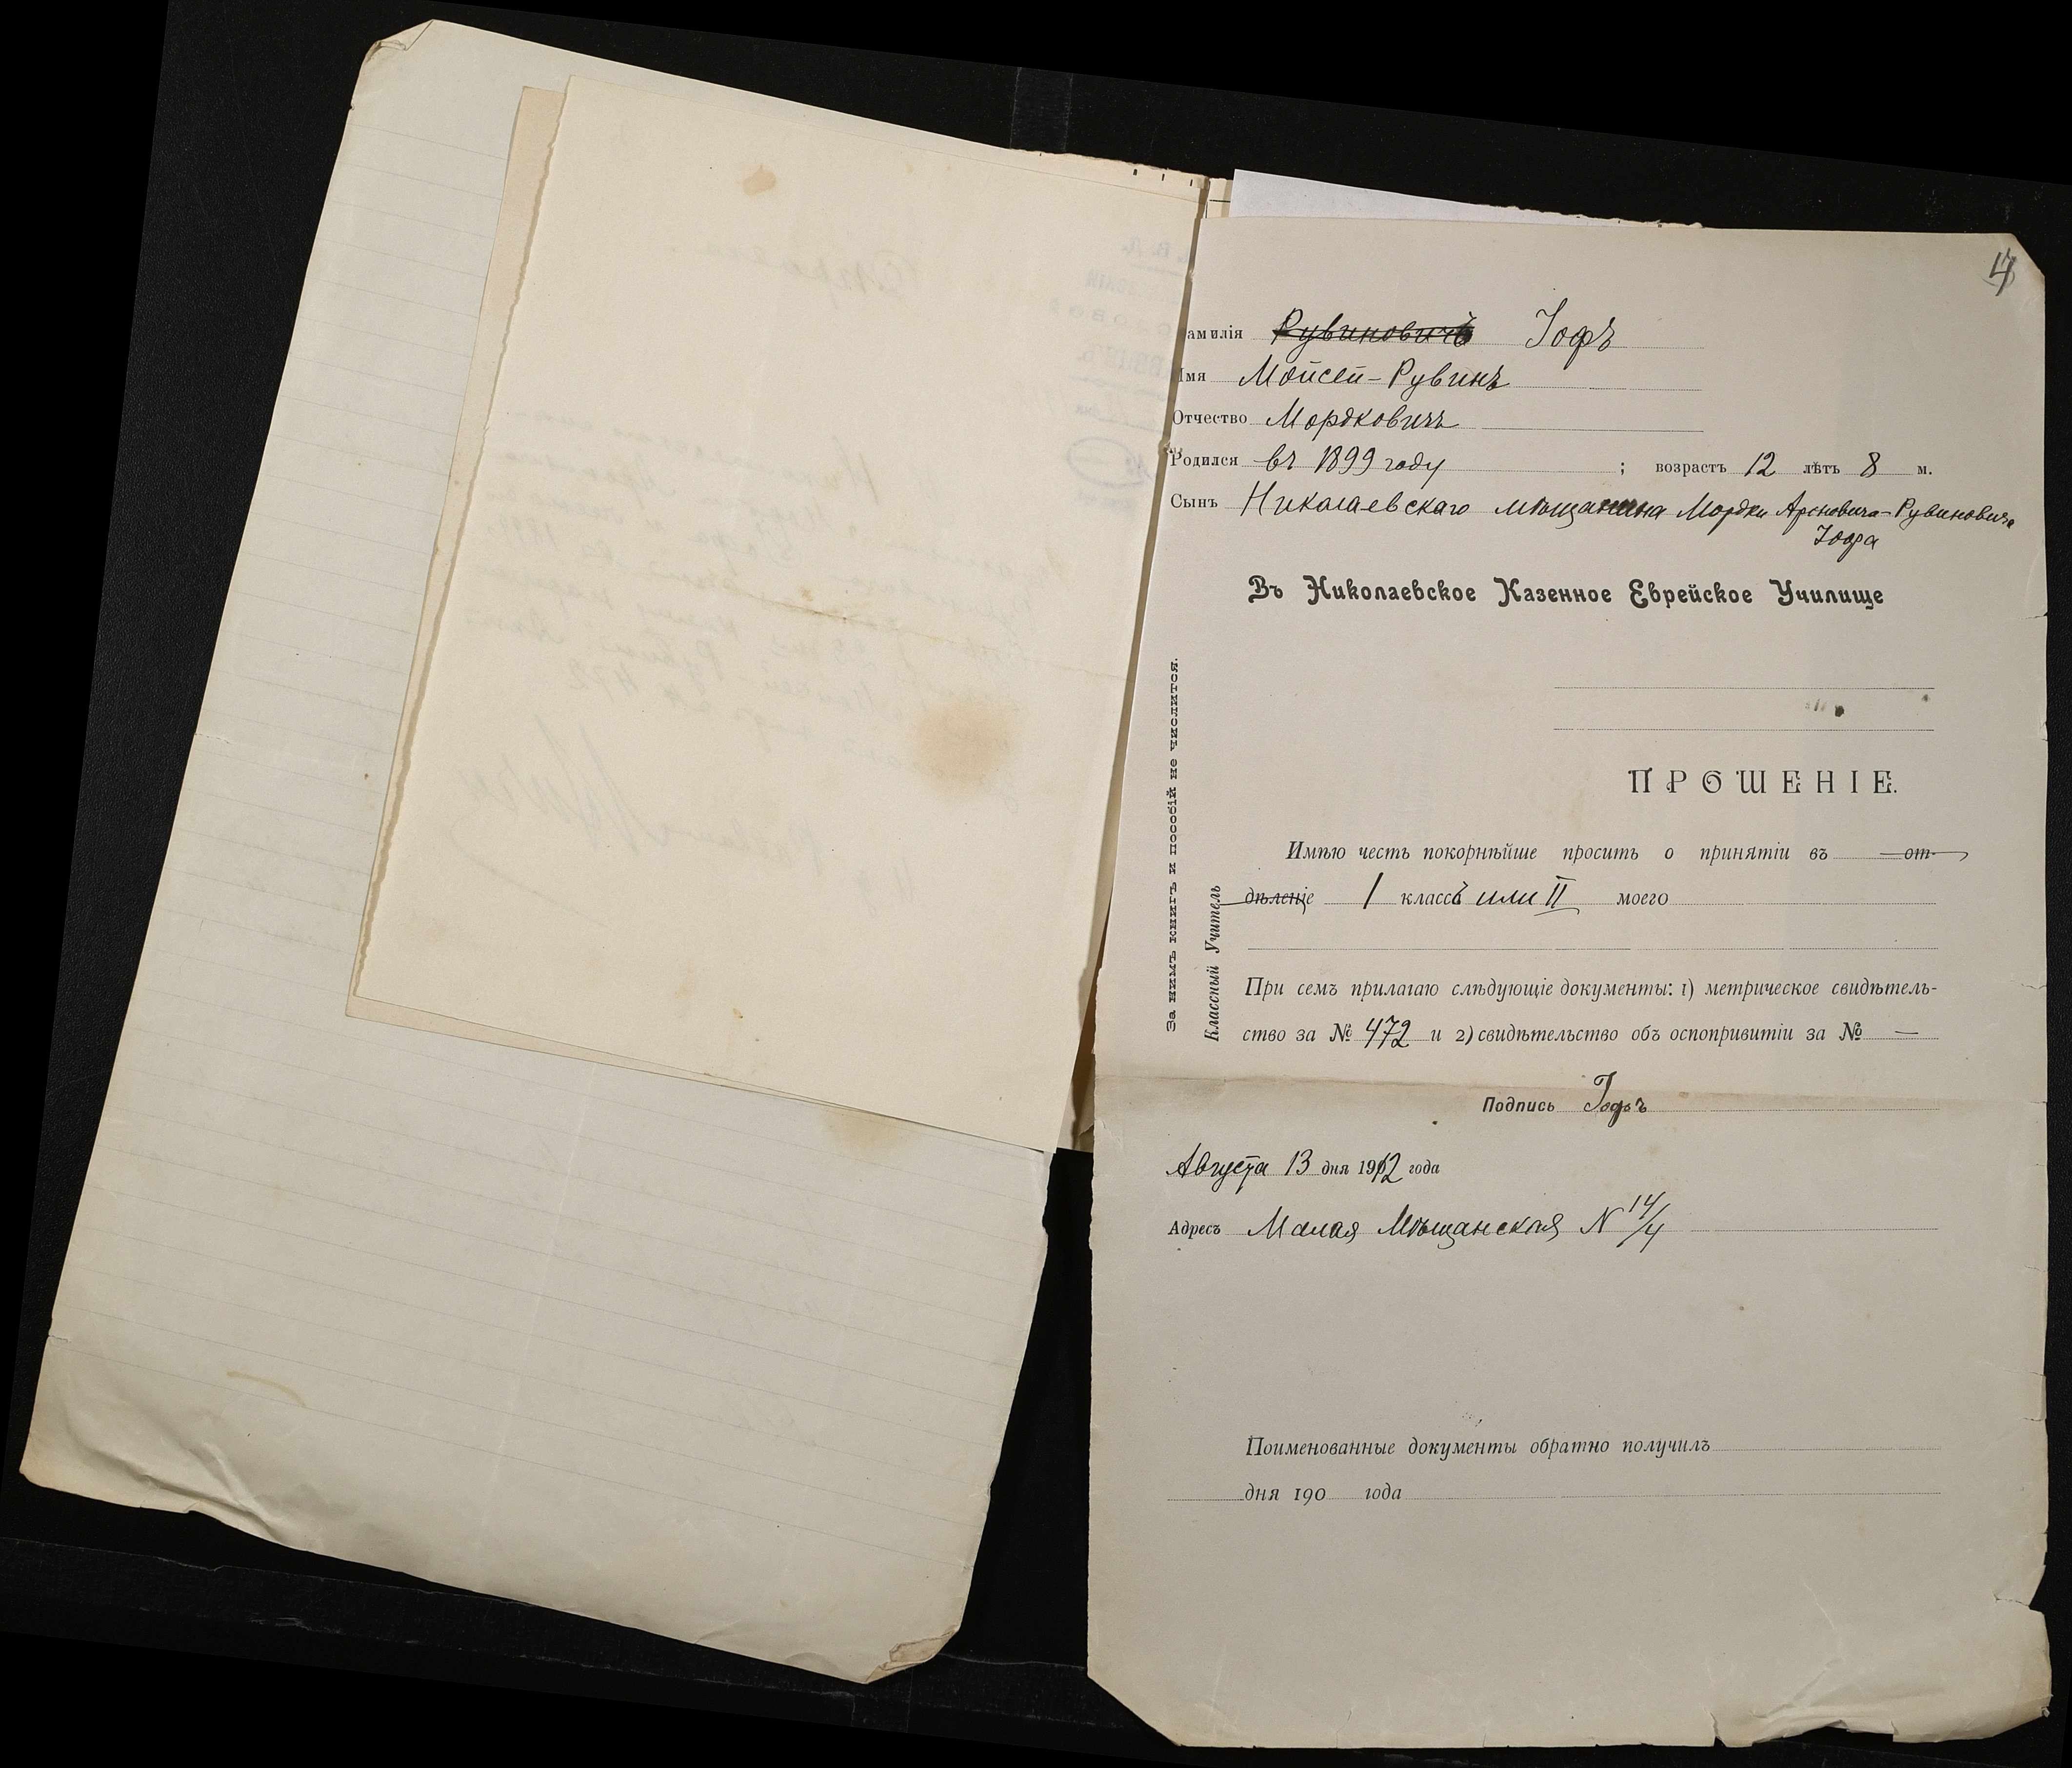 17
Фамилія Рувиновичъ Іофъ
Имя Мойсей-Рувинъ
Отчество Мордковичъ
Родился въ 1899 году ; возрастъ 12 лѣтъ 8 м.
Сынъ Николаевскаго мѣщанина Мордки Ароновича-Рувиновича
Іофа
Въ Николаевское Казенное Еврейское Училище
ПРОШЕНІЕ.
Имѣю честь покорнѣйше просить о принятіи въ от-
дѣленіе I классъ или II моего
При семъ прилагаю слѣдующіе документы: 1) метрическое свидѣтель-
ство за № 472 и 2) свидѣтельство объ оспопривитіи за № —
Подпись Іофъ
Августа 13 дня 1912 года
Адресъ Малая Мѣщанская N 14/4
Поименованные документы обратно получилъ
дня 190 года
За нимъ книгъ и пособій не числится.
Классный Учитель